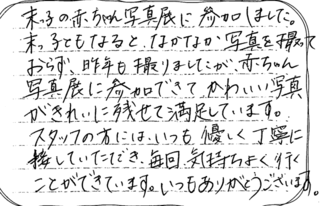 末っ子の赤ちゃん写真展に参加しました。
末っ子ともなると、なかなか写真を撮って
おらず、昨年も撮りましたが、赤ちゃん
写真展に参加できて かわいい写真
がきれいに残せて満足しています。
スタッフの方には、いつも優しく丁寧に
接していただき、毎回気持ちよく行く
ことができています。いつもありがとうございます。